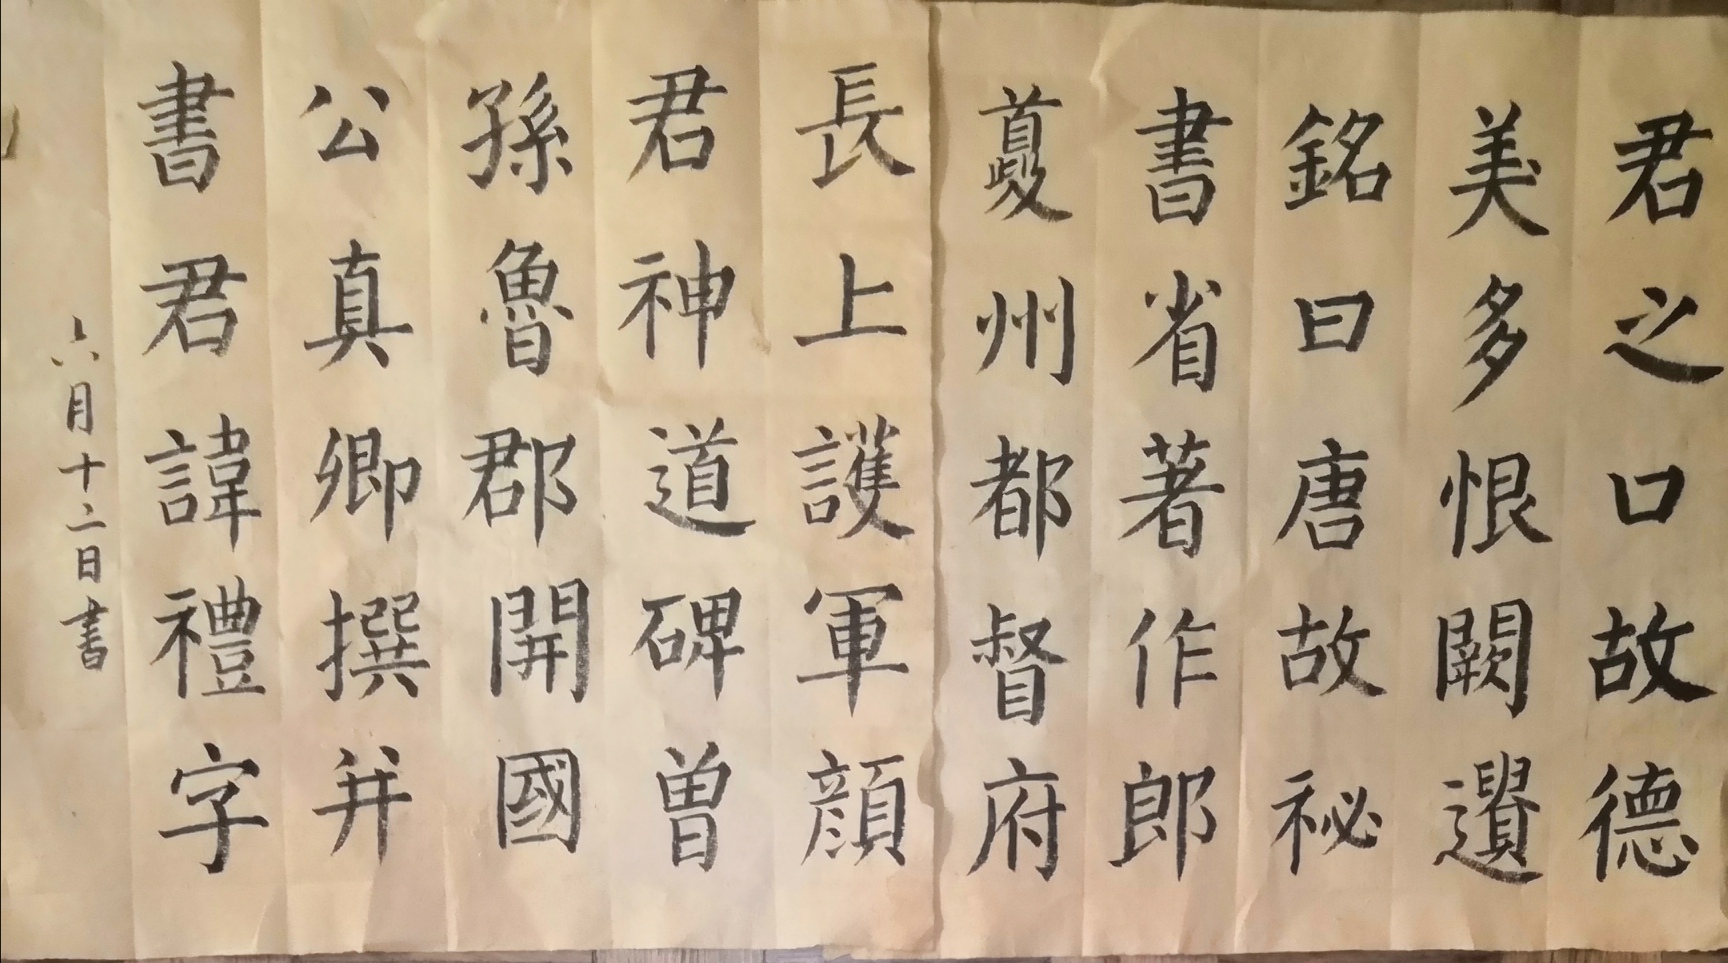 君之口故德
美多恨闕遺
銘曰唐故祕
書省著作郎
夔州都督府
長上護軍顏
君神道碑曾
孫魯郡開國
公真卿撰并
書君諱禮字
六月十二日書